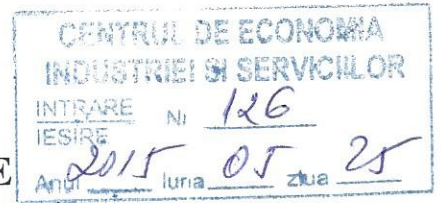 CENTRUL DE ECONOMIA
INDUSTRIEI SI SERVICIILOR
INTRARE Nr 126
IESIRE
E Anul 2015 luna 05 ziua 25